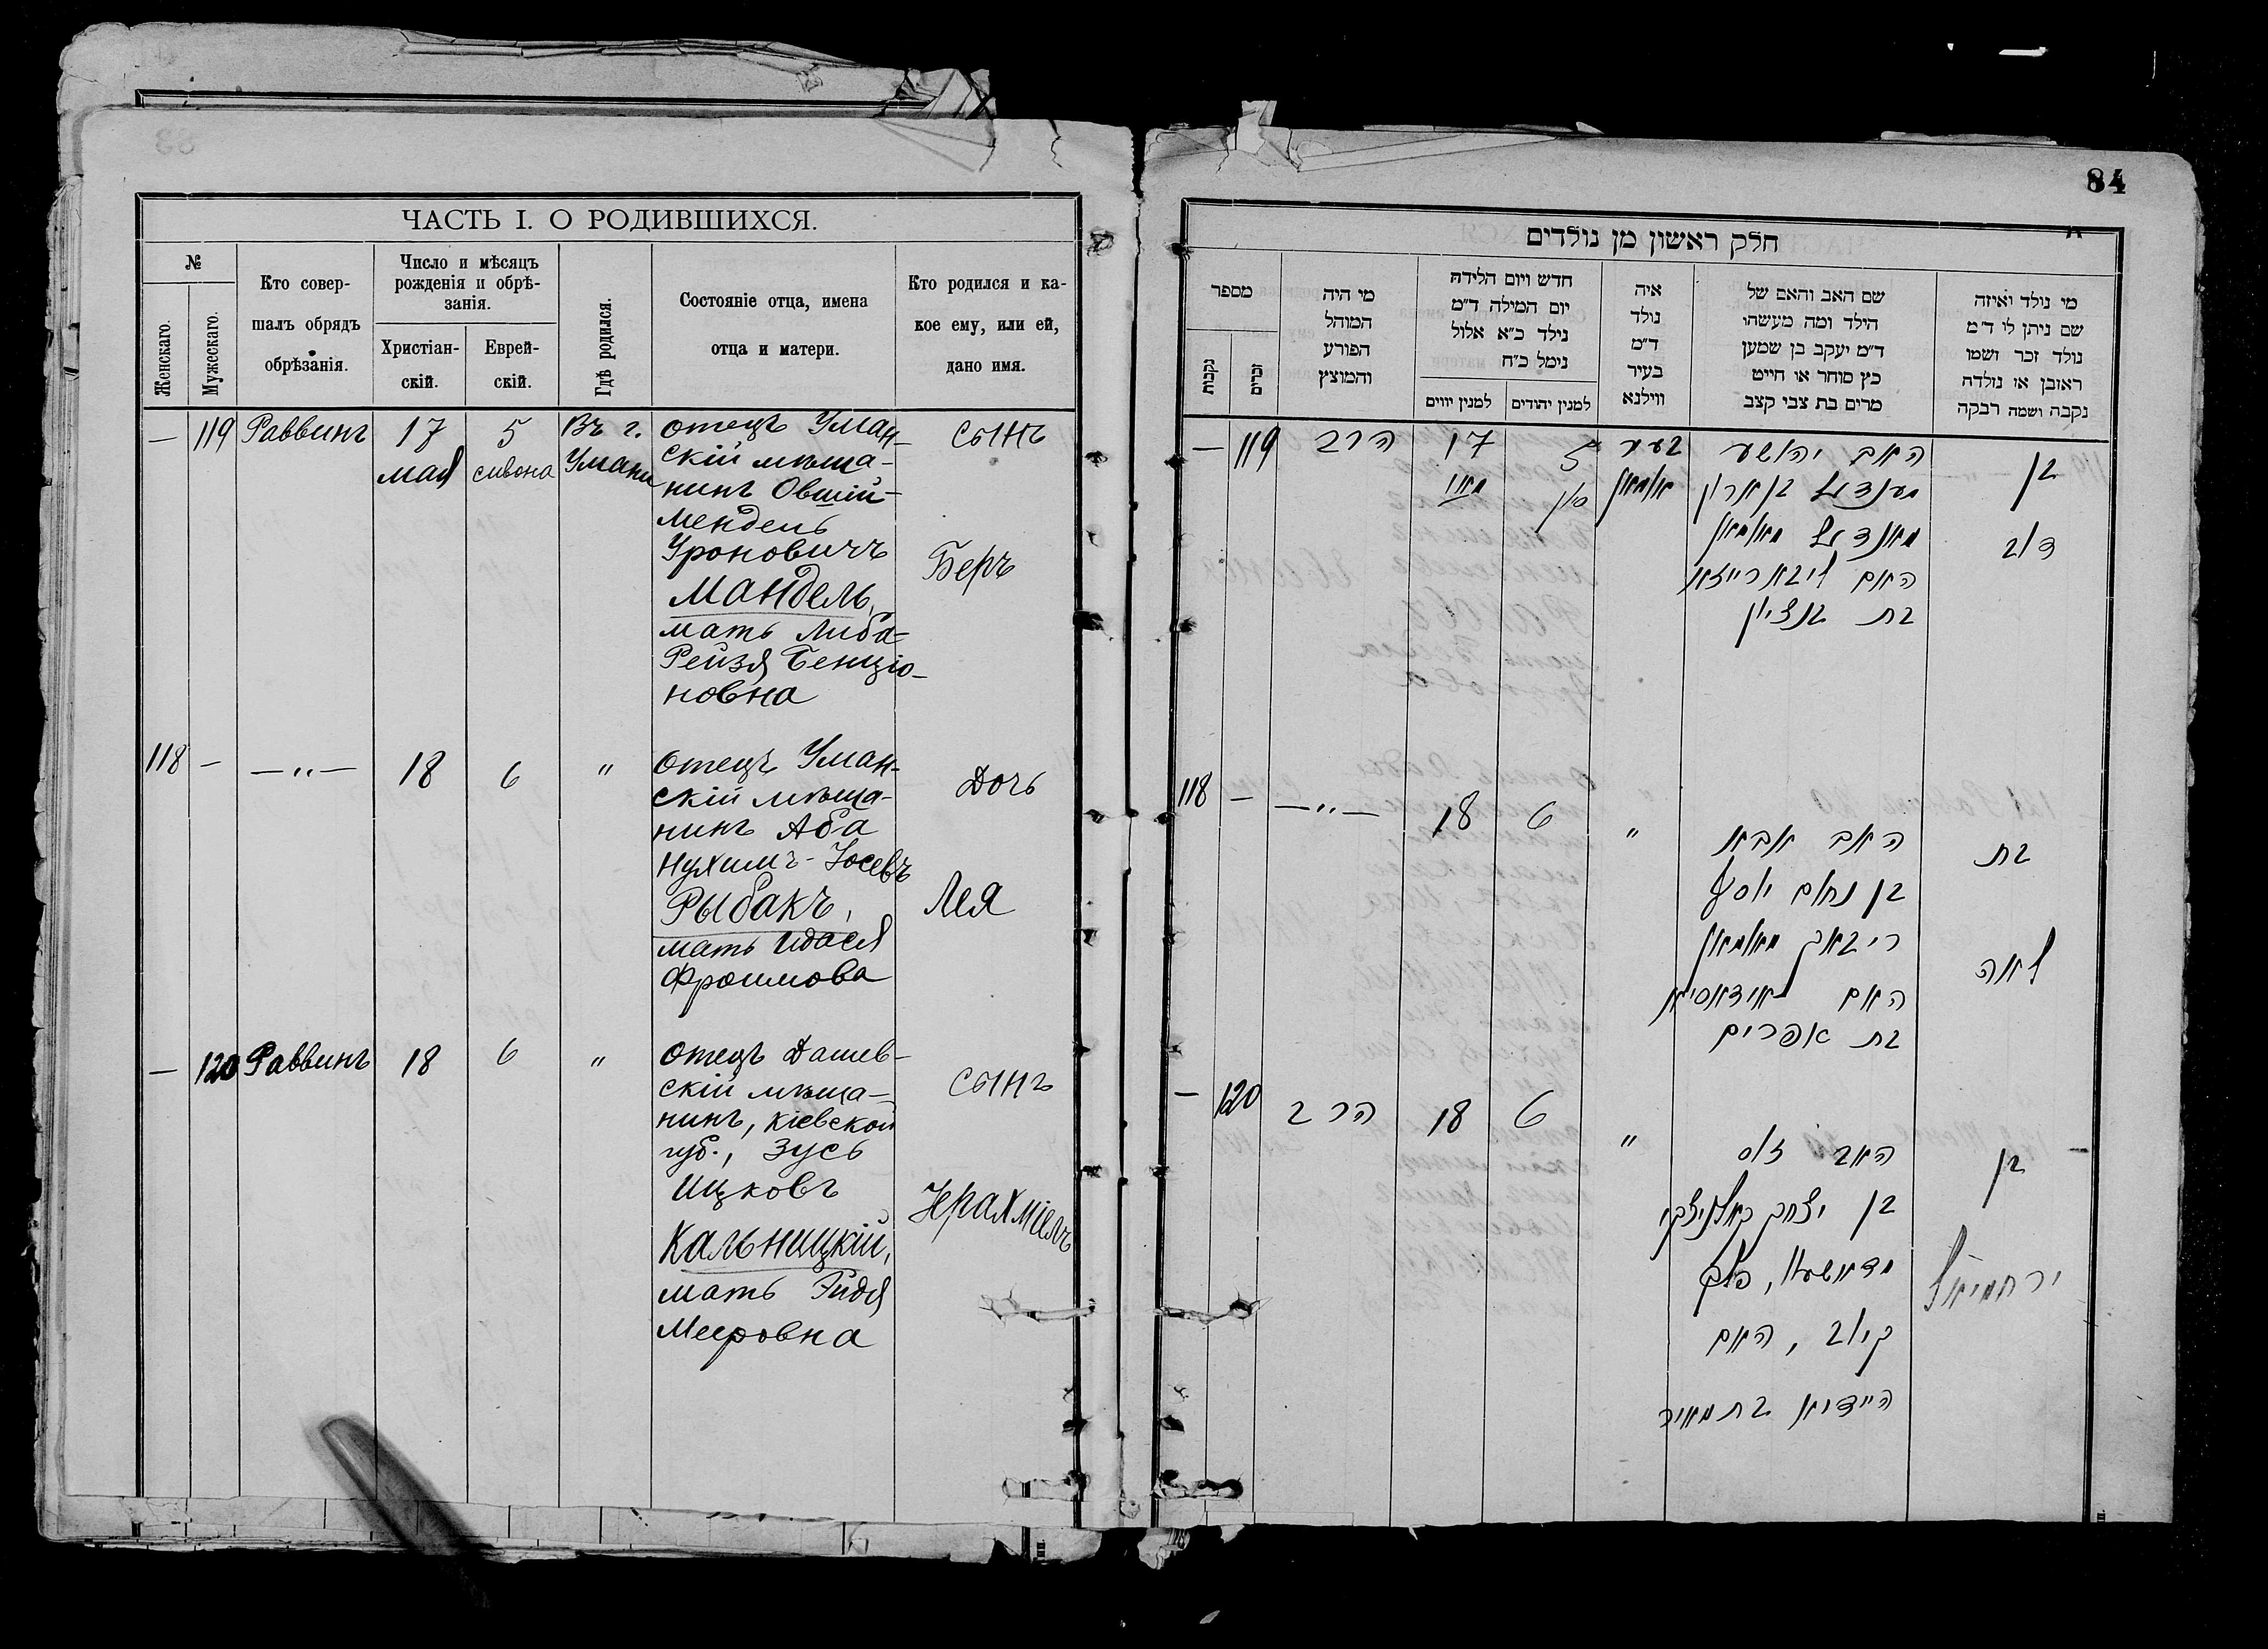 ЧАСТЬ I. О РОДИВШИХСЯ.
№
Женскаго.
Мужескаго.
Кто совер-
шалъ обрядъ
обрѣзанія.
Число и мѣсяцъ
рожденія и обрѣ-
занія.
Христіан-
скій.
Еврей-
скій.
Гдѣ родился.
Состояніе отца, имена
отца и матери.
Кто родился и ка-
кое ему, или ей,
дано имя.
— 119 Раввинъ 17 5 Въ г. отецъ Уман- сынъ
мая сивона Умани скій мѣща-
нинъ Овшій-
Мендель
Уроновичъ
Беръ
Мандель,
мать Либа-
Рейзя Бенціо-
новна
118 — —„— 18 6 „ отецъ Уман- Дочь
скій мѣща-
нинъ Аба
Нухимъ-Іосевъ
Рыбакъ, Лея
мать Идася
Фроимова
— 120 Раввинъ 18 6 „ отецъ Дашев- сынъ
скій мѣща-
нинъ, Кіевской
губ., Зусь
Ицковъ Іерахміель
Кальницкій,
мать Эйдя
Мееровна
84
חלק ראשון מן נולדים
מספר
נקבות
זכרים
מי היה
המוהל
הפורע
והמוצץ
חדש ויום הלידה
יום המילה ד"מ
נילד כ"א אלול
נימל כ"ח
למנין יווים
למנין יהודים
איה
נולד
ד"מ
בעיר
ווילנא
שם האב והאם של
הילד ומה מעשהו
ד"מ יעקב בן שמען
כץ סוחר או חייט
מרים בת צבי קצב
מי נולד ואיזה
שם ניתן לו ד"מ
נולד זכר ושמו
ראובן או נולדה
נקבה ושמה רבקה
— 119 הרב 17 5 בעיר האב יהושע בן
מאי סיון אומאן מענדיל בן ארון
מאנדיל מאומאן דוב
האם ליבא רייזא
בת בנציון
118 — —„— 18 6 „ האב אבא בת
בן נחום יוסף
ריבאק מאומאן לאה
האם אידאסיא
בת אפרים
— 120 הרב 18 6 „ האב זוס בן
בן יצחק קאלניצקי
מדאשעוו, פלך ירחמיאל
קיוב, האם
היידיא בת מאיר